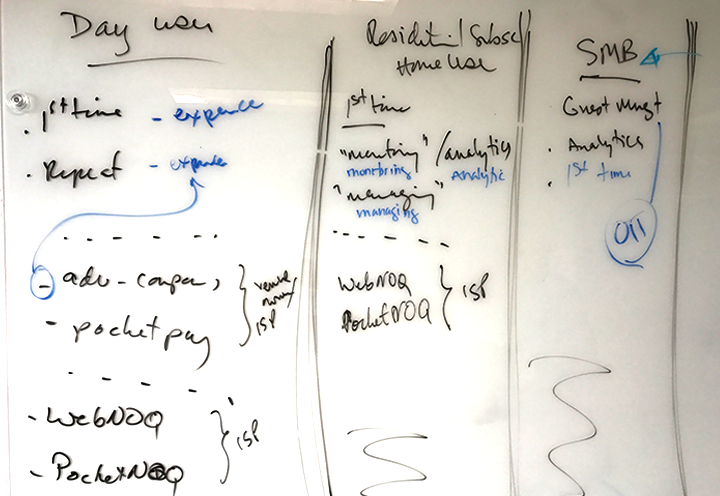 Day user
. 1st time - expernce
. Repeat - expernce
- adv - coupon,
- pocket pay
ISP
- WebNOQ
- PocketNOQ
ISP
Residential/Subsc
Home Use
1st time
"monitoring" / analytics
monitoring Analytic
"managing"
managing
WebNOQ
PocketNOQ
ISP
SMB
Guest Mngt
. Analytics
. 1st time